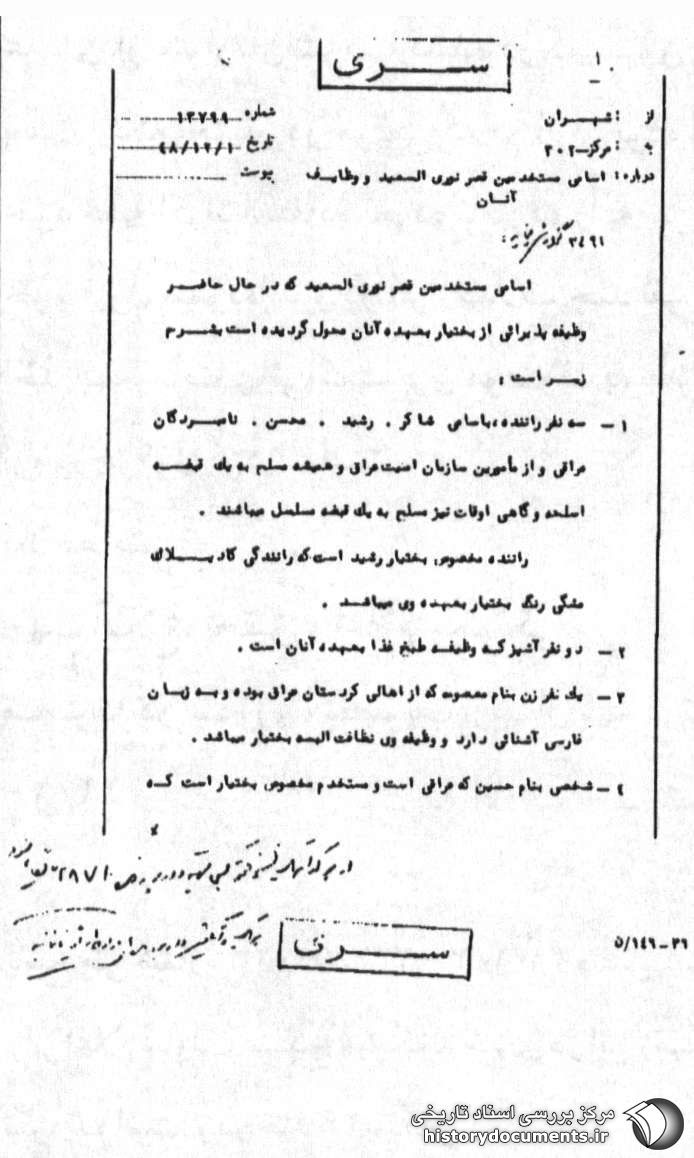 سـری
۱
از : شهـران
شماره ۱۳۷۹۹
به : مرکز-۳۰۲
تاریخ ۴۸/۱۲/۱
پیوست
درباره : اسامی مستخدمین قصر نوری السعید و وظایـف
آنـان
اسامی مستخدمین قصر نوری السعید که در حال حاضـر
وظیفه پذیرائی از بختیار بعهده آنان محول گردیده است بشـرح
زیـر است :
۱ - سه نفر راننده ،باسامی شاکر . رشید . محسن . نامبـردگان
عراقی و از مأمورین سازمان امنیت عراق و همیشه مسلح به یك قبضـه
اسلحه و گاهی اوقات نیز مسلح به یك قبضه مسلسل میباشند .
راننده مخصوص بختیار رشید است که رانندگی کادیـلاك
مشگی رنگ بختیار بعهده وی میباشـد .
۲ - دو نفر آشپز کـه وظیفـه طبخ غذا بعهده آنان است .
۳ - یك نفر زن بنام معصومه که از اهالی کردستان عراق بوده و بـه زبـان
فارسی آشنائی دارد و وظیفه وی نظافت البسه بختیار میباشد .
٤ - شخصی بنام حسین که عراقی است و مستخدم مخصوص بختیار است کـه
سـری
۳۶ - ۱٤۶/ن
مرکز بررسی اسناد تاریخی
historydocuments.ir